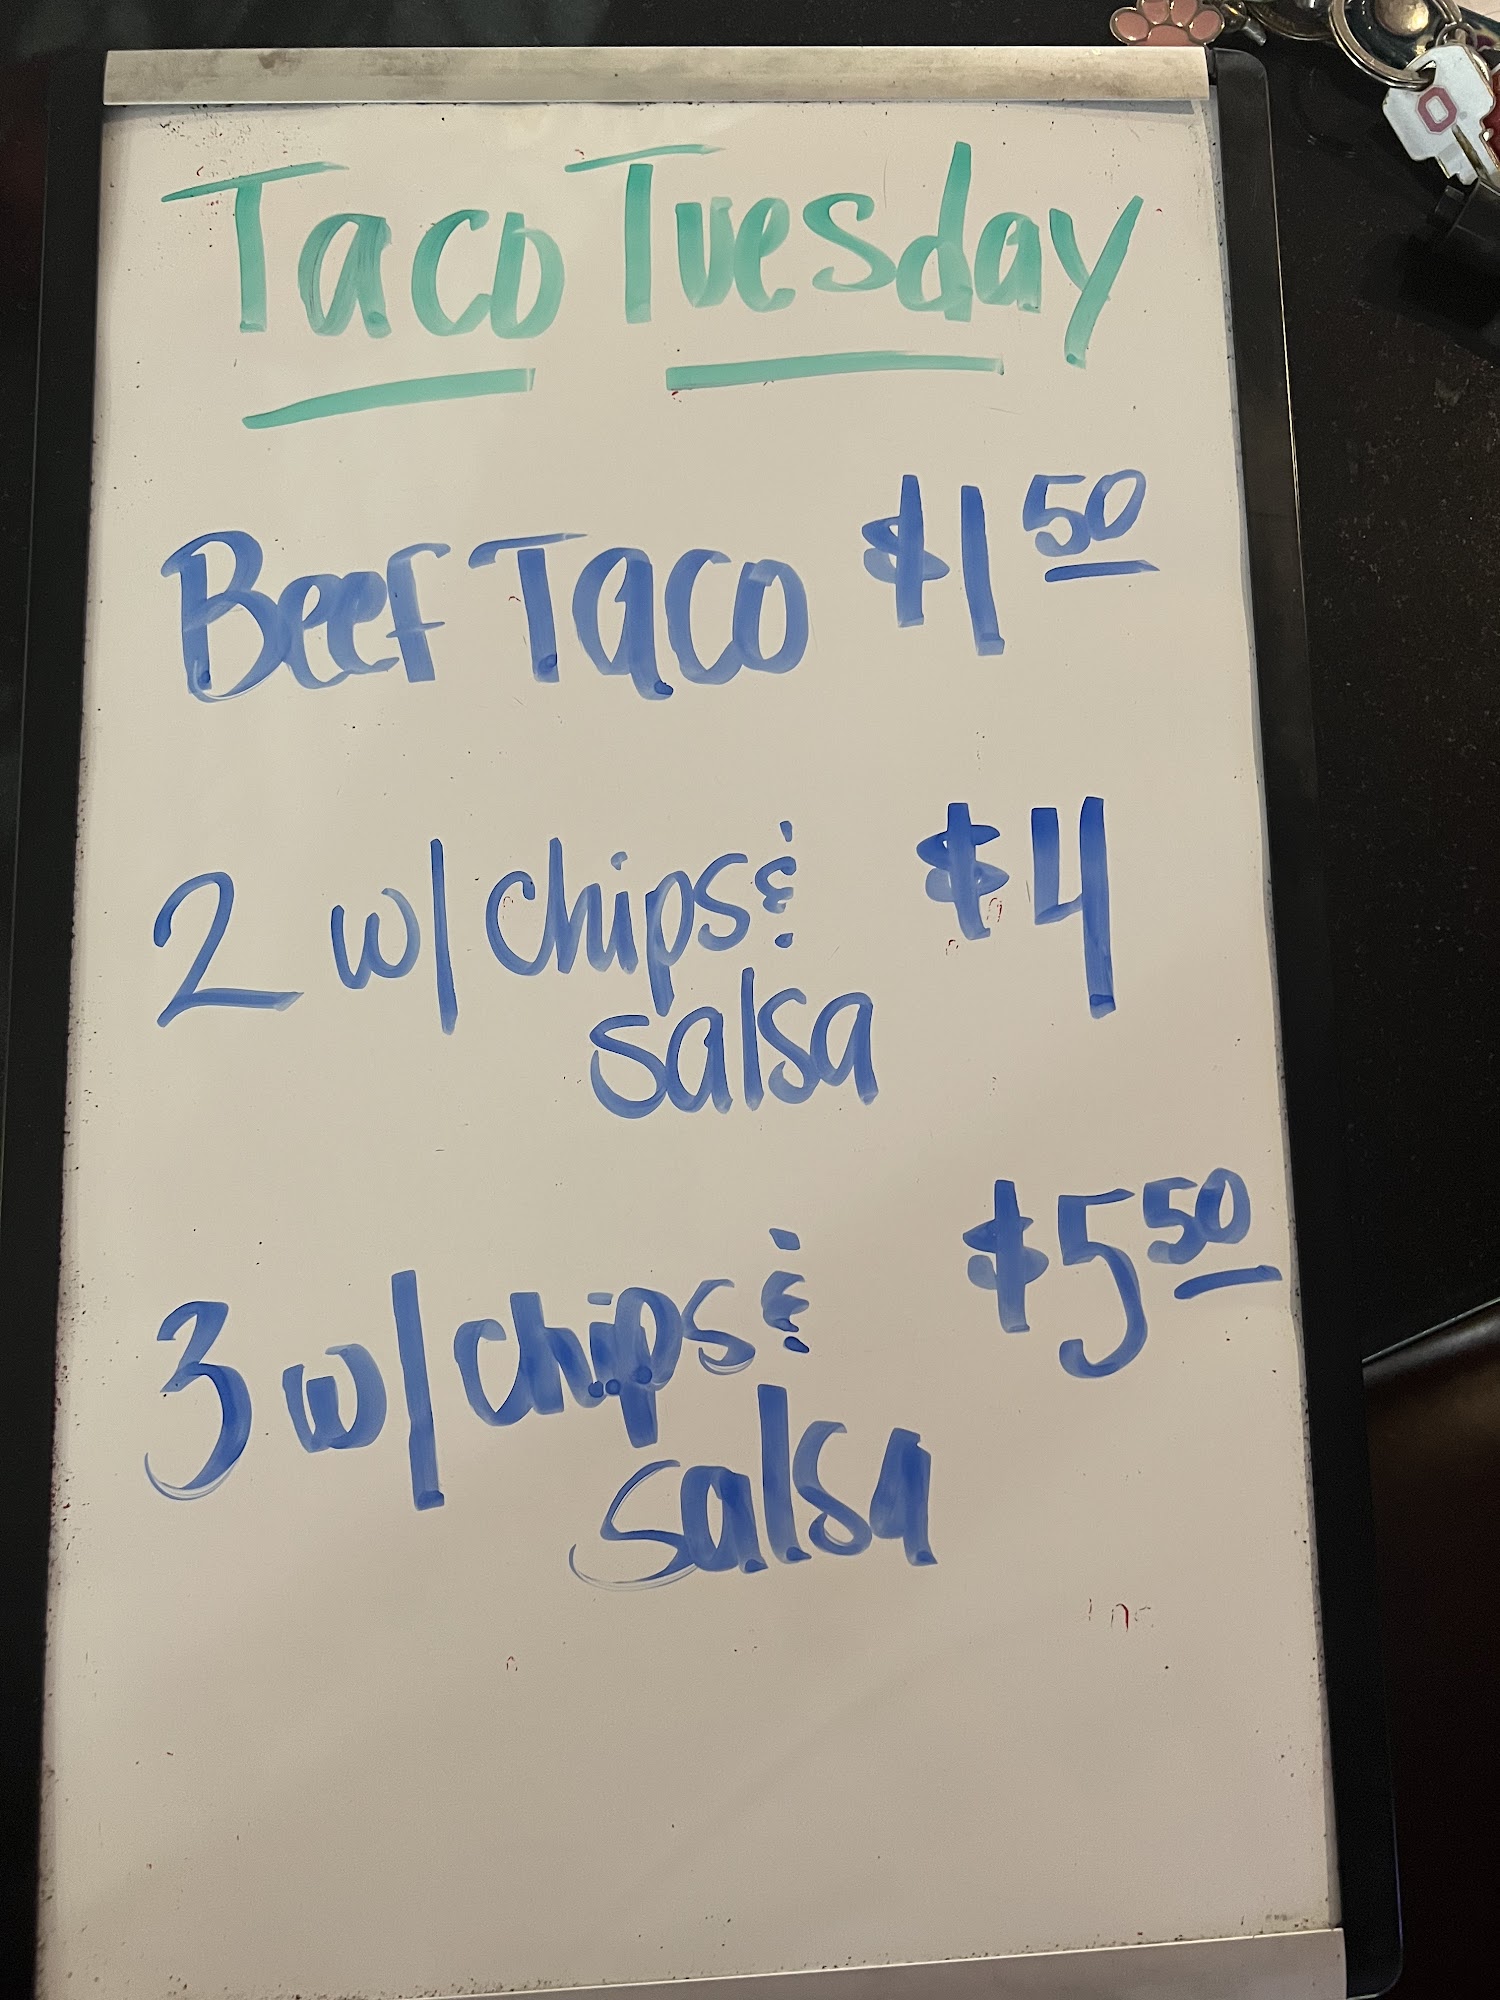 Taco Tuesday
Beef Taco $1 50
2 w/ chips & $4
salsa
3 w/ chips & $5 50
salsa
O